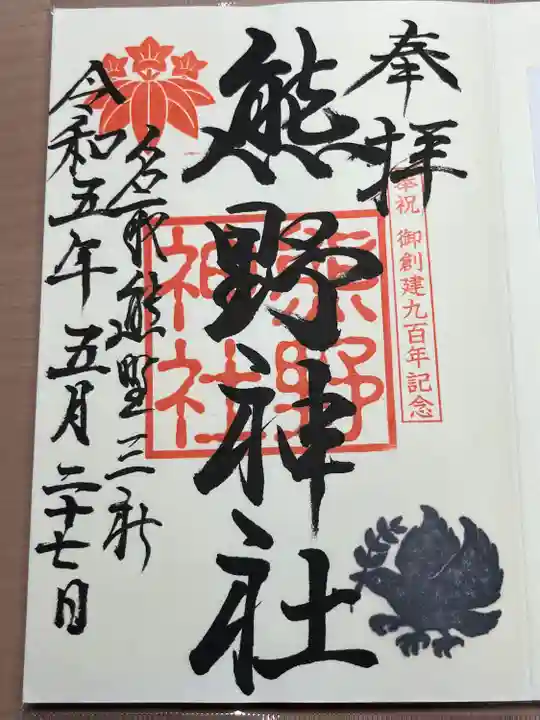 奉拝
奉祝 御創建九百年記念
熊野神社
熊野
神社
名取熊野三社
令和五年五月二十七日